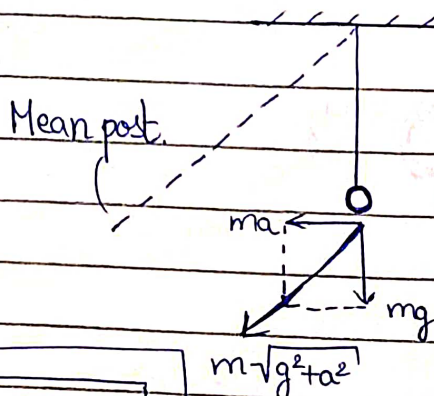 Mean post.
ma
mg
m√g²+a²